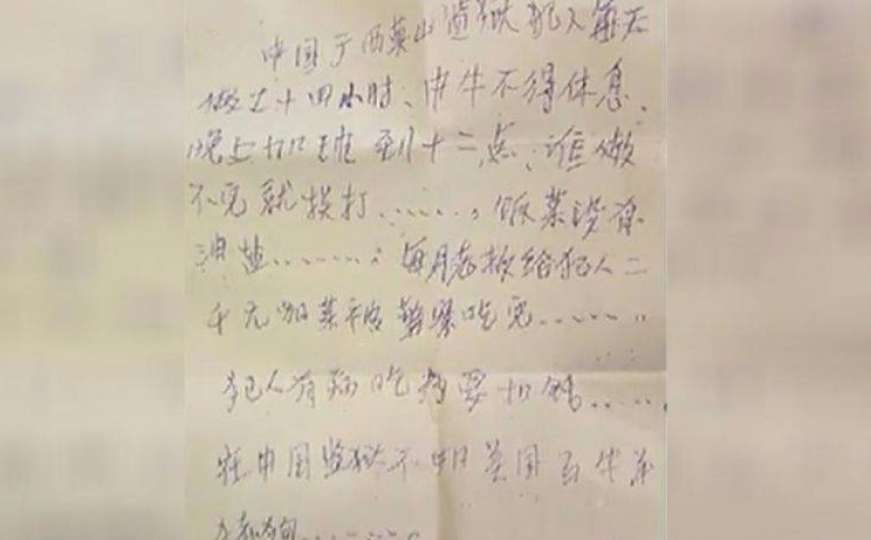 中国广西英山监狱犯人每天
做工十四小时、中午不得休息、
晚上加班到十二点、谁做
不完就挨打......,饭菜没有
油盐.......;每月老板给犯人二
千元加菜被警察吃完.......
犯人有病吃药要扣钱.....
在中国监狱不如美国马牛羊
猪狗........